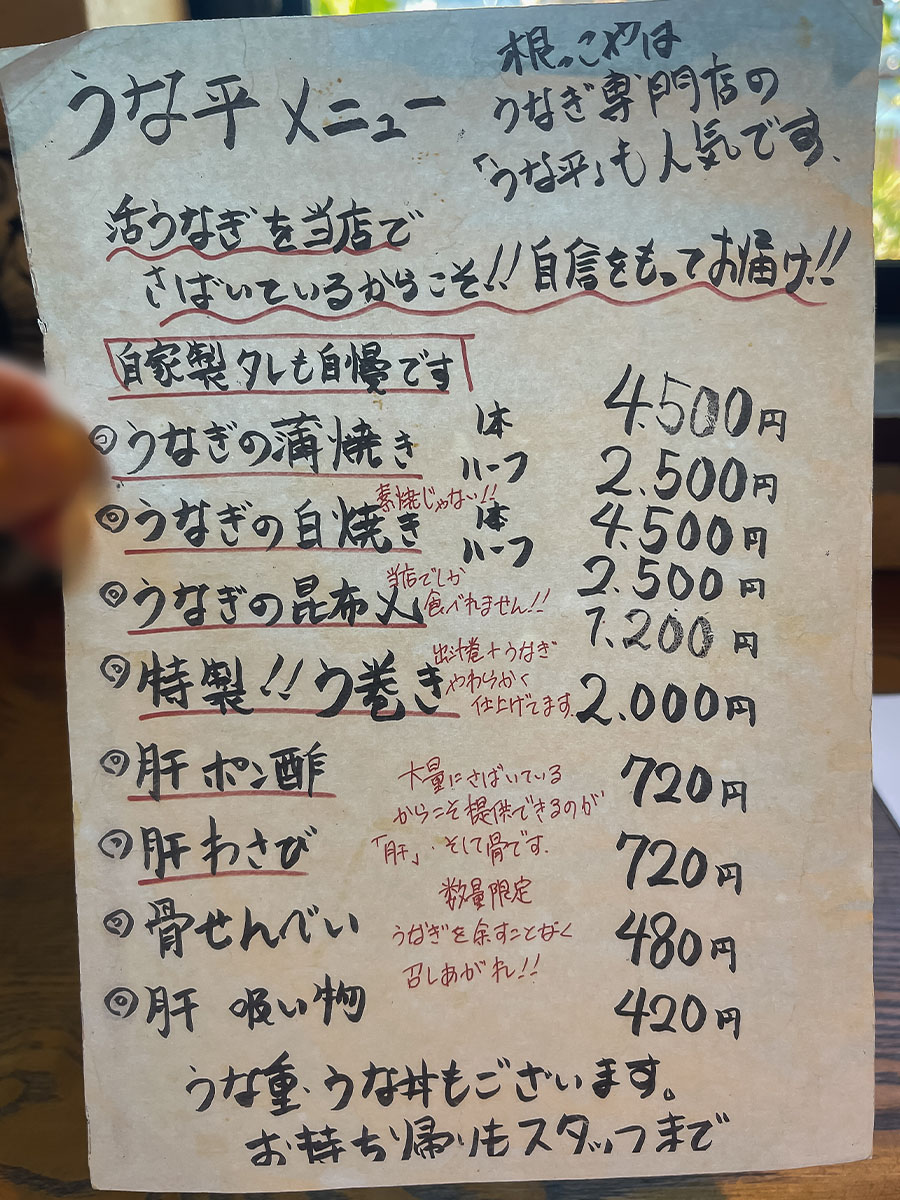 うな平 メニュー
根っこやは
うなぎ専門店の
「うな平」も人気です。
活うなぎを当店で
さばいているからこそ!! 自信をもってお届け!!
自家製タレも自慢です
◎うなぎの蒲焼き 1本 4.500円
ハーフ 2.500円
素焼じゃない!!
◎うなぎの白焼き 1本 4.500円
ハーフ 2.500円
当店でしか
食べれません!!
◎うなぎの昆布〆 1.200円
出汁巻+うなぎ
やわらかく
仕上げてます。
◎特製!!う巻き 2.000円
◎肝ポン酢 720円
◎肝わさび 720円
大量にさばいている
からこそ提供できるのが
「肝」、そして骨です。
数量限定
うなぎを余すことなく
召しあがれ!!
◎骨せんべい 480円
◎肝 吸い物 420円
うな重、うな丼もございます。
お持ち帰りもスタッフまで